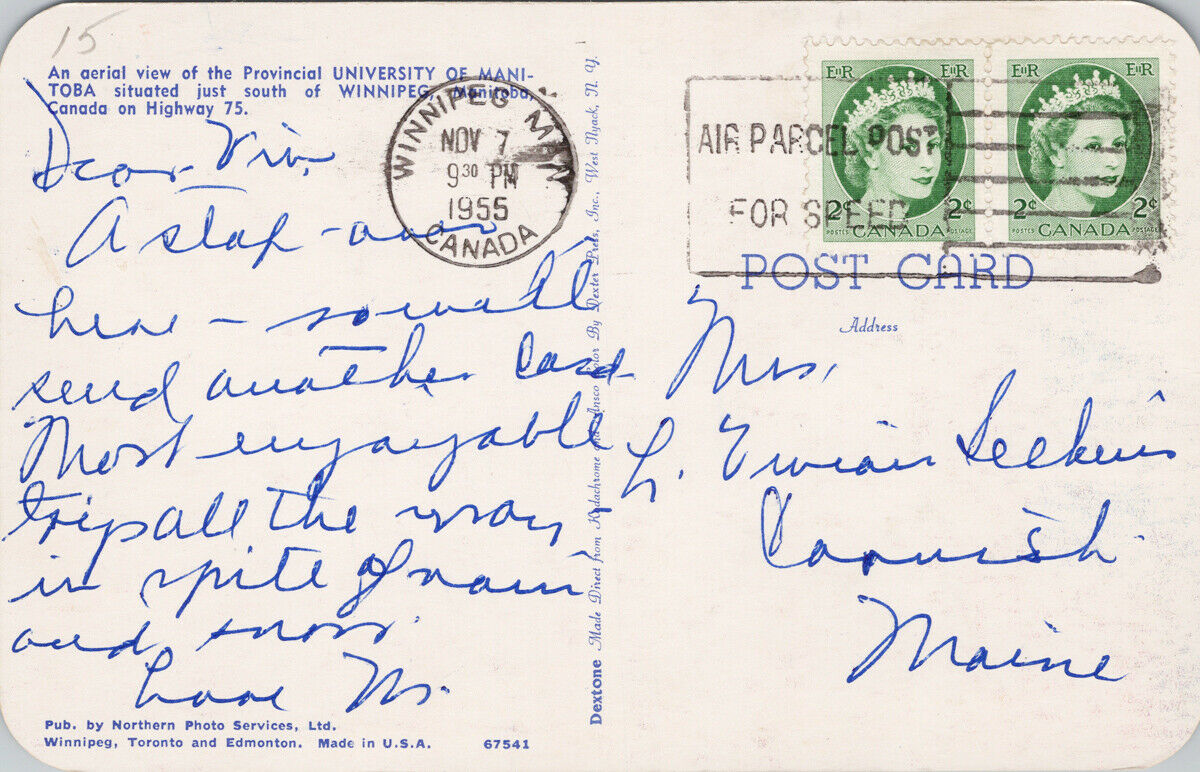 15
An aerial view of the Provincial UNIVERSITY OF MANI-
TOBA situated just south of WINNIPEG, Manitoba,
Canada on Highway 75.
Dear Viv.
A stop - over
here - so will
send another card
Most enjoyable
trip all the way
in spite of rain
and snow.
Love M.
Pub. by Northern Photo Services, Ltd.
Winnipeg, Toronto and Edmonton. Made in U.S.A. 67541
WINNIPEG MAN.
NOV 7
9³⁰ PM
1955
CANADA
Dextone Made Direct from Kodachrome and Ansco Color By Dexter Press, Inc., West Nyack, N. Y.
AIR PARCEL POST
FOR SPEED
EIIR EIIR
2¢ 2¢
POSTES CANADA POSTAGE
EIIR EIIR
2¢ 2¢
POSTES CANADA POSTAGE
POST CARD
Address
Mrs.
L. Vivian
Cornish
Maine